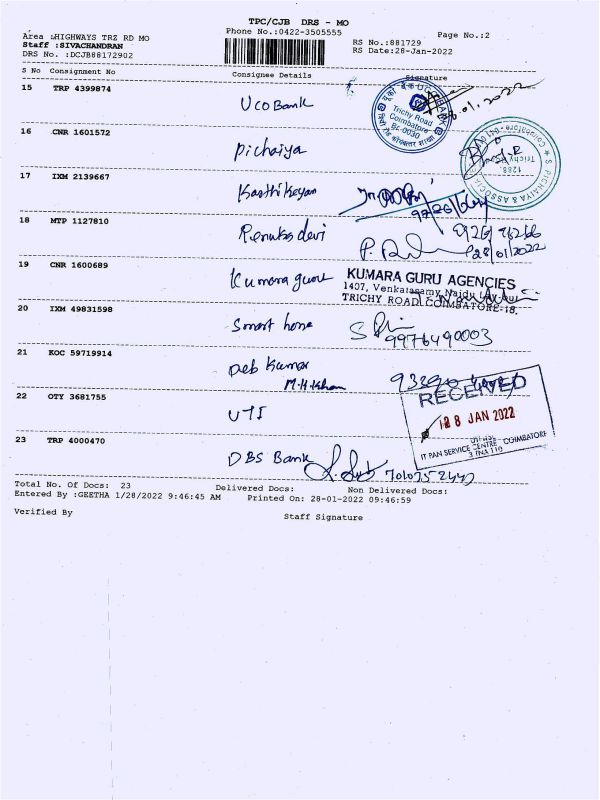 TPC/CJB DRS - MO
Phone No.:0422-3505555
Page No.:2
Area :HIGHWAYS TRZ RD MO
Staff :SIVACHANDRAN
DRS No. :DCJB88172902
RS No.:881729
RS Date:28-Jan-2022
S No Consignment No Consignee Details Signature
15 TRP 4399874
UCO Bank
Trichy Road
Coimbatore
16 CNR 1601572
Pichaiya
S. PICHAIYA & ASSOCIATES
1288,
17 IXM 2139667
Karthikeyan
18 MTP 1127810
Renuka devi
28/01/2022
19 CNR 1600689
Kumara guru
KUMARA GURU AGENCIES
1407, Venkatasamy Naidu
TRICHY ROAD, COIMBATORE-18.
20 IXM 49831598
Smart home
9976490003
21 KOC 59719914
Deb Kumar
M.H.Khan
22 OTY 3681755
UTI
RECEIVED
28 JAN 2022
IT PAN SERVICE CENTRE COIMBATORE
23 TRP 4000470
DBS Bank
Total No. Of Docs: 23 Delivered Docs: Non Delivered Docs:
Entered By :GEETHA 1/28/2022 9:46:45 AM Printed On: 28-01-2022 09:46:59
Verified By Staff Signature